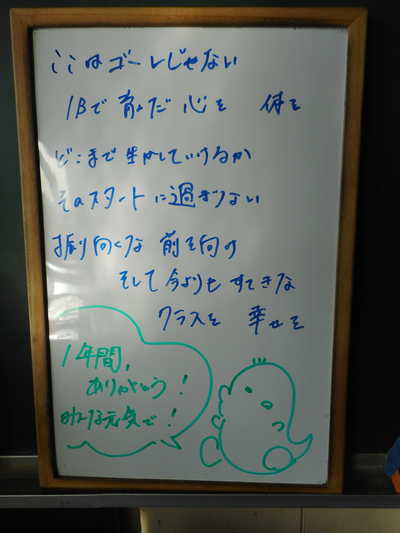 ここはゴールじゃない
1Bで育んだ 心を 体を
どこまで生かしていけるか
そのスタートに過ぎない
振り向くな 前を向け
そして今よりもすてきな
クラスを 幸せを
1年間,
ありがとう!
みんな元気で!